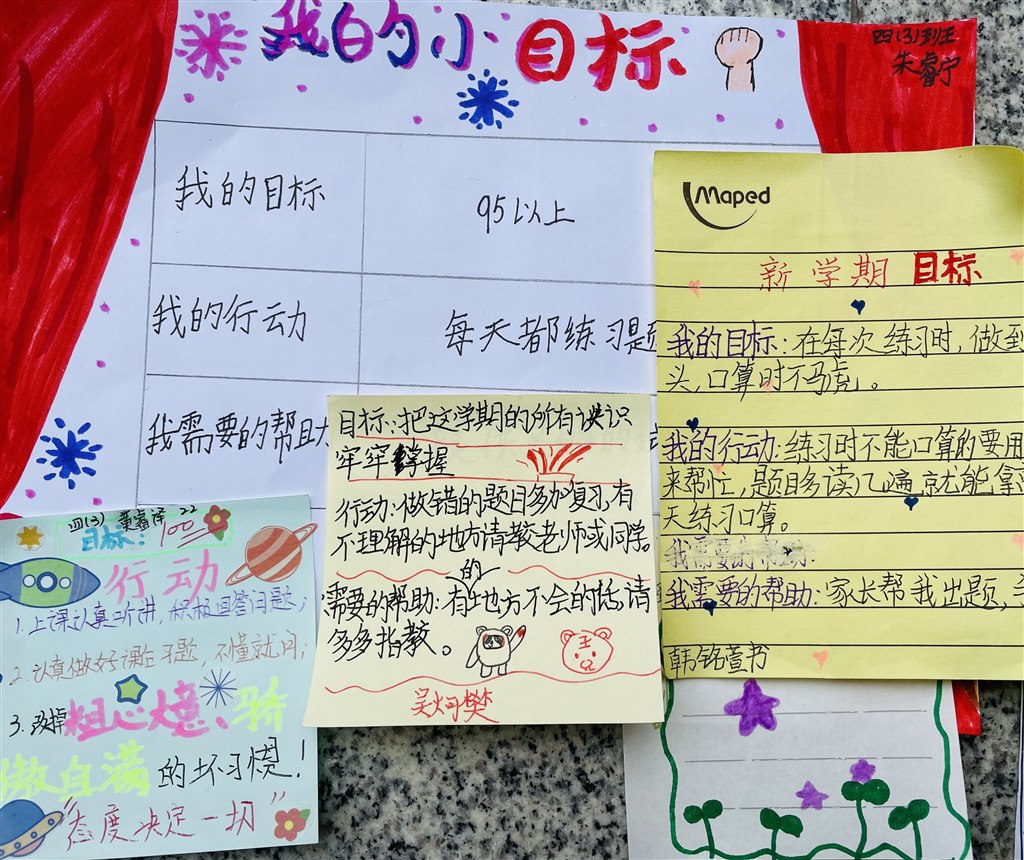 我的小目标
四(3)班
朱睿宁
我的目标
95以上
我的行动
每天都练习题
我需要的帮助
Maped
新学期目标
我的目标:在每次练习时,做到
头,口算时不马虎。
我的行动:练习时不能口算的要用
来帮忙,题目多读几遍就能拿
天练习口算。
我需要的帮助:
我需要的帮助:家长帮我出题,
韩铭萱书
目标:把这学期的所有误识
牢牢撑握
行动:做错的题目多加复习,有
不理解的地方请教老师或同学。
需要的帮助:有的地方不会的话,请
多多指教。
四(3) 黄睿泽 22
目标:100
行动
1.上课认真听讲,积极回答问题;
2.认真做好课后习题,不懂就问;
3.改掉粗心大意、骄
傲自满的坏习惯!
“态度决定一切”